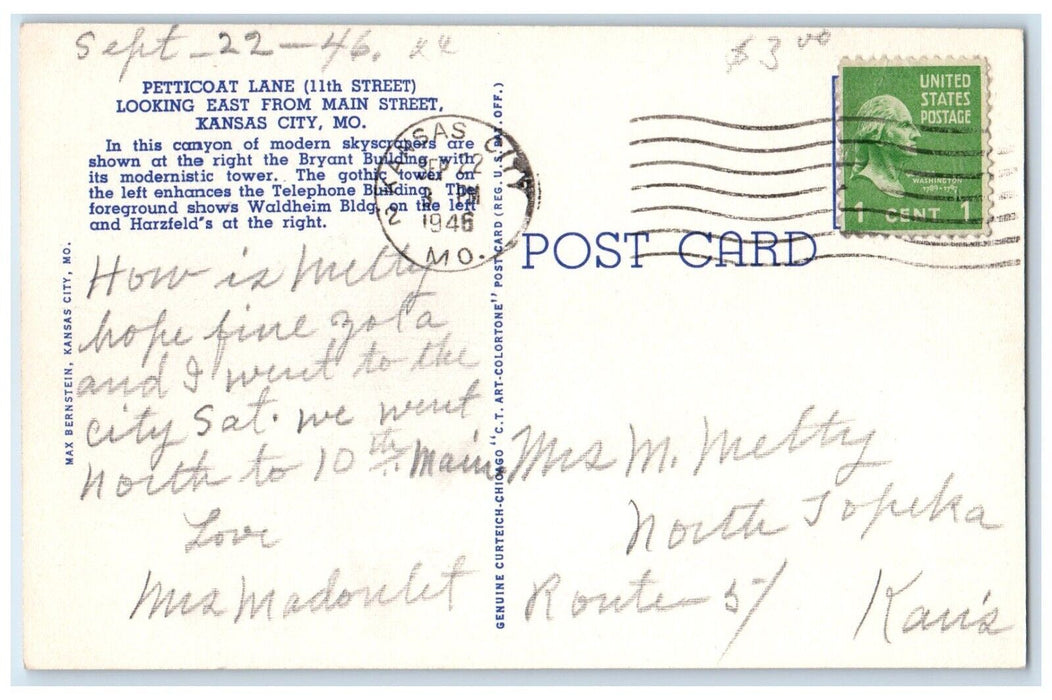 Sept-22-46. xx
$3⁰⁰
PETTICOAT LANE (11th STREET)
LOOKING EAST FROM MAIN STREET,
KANSAS CITY, MO.
In this canyon of modern skyscrapers are
shown at the right the Bryant Building with
its modernistic tower. The gothic tower on
the left enhances the Telephone Building. The
foreground shows Waldheim Bldg. on the left
and Harzfeld's at the right.
KANSAS CITY 2
SEP 22
3 PM
1946
MO.
UNITED
STATES
POSTAGE
WASHINGTON
1789-1797
1 CENT 1
POST CARD
How is Meltty
hope fine zola
and I went to the
city Sat. we went
North to 10th. Main
Love
Mrs Madoulet
Mrs M. Meltty
North Topeka
Route 5/
Kans
MAX BERNSTEIN, KANSAS CITY, MO.
GENUINE CURTEICH-CHICAGO "C.T. ART-COLORTONE" POST CARD (REG. U.S. PAT. OFF.)